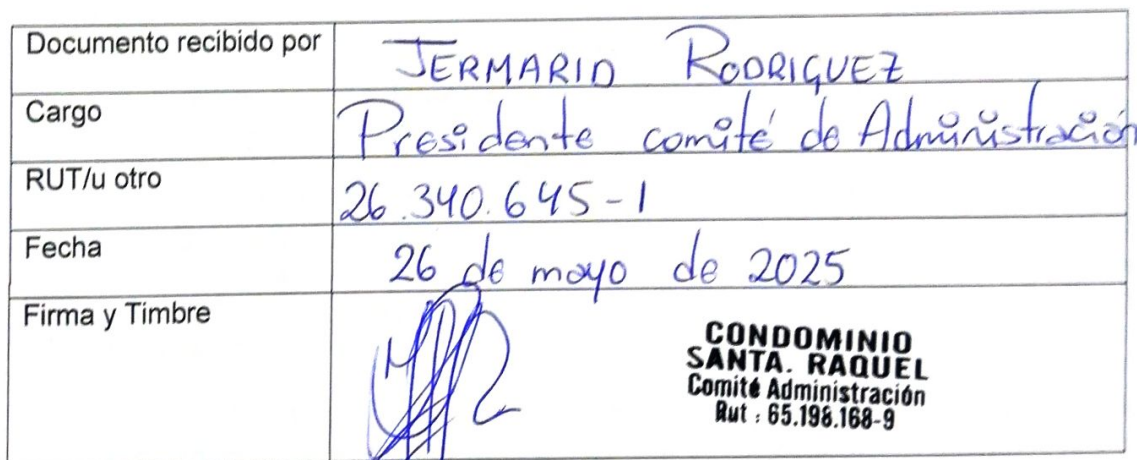 Documento recibido por JERMARIO RODRIGUEZ
Cargo Presidente comité de Administración
RUT/u otro 26.340.645-1
Fecha 26 de mayo de 2025
Firma y Timbre
CONDOMINIO
SANTA. RAQUEL
Comité Administración
Rut : 65.198.168-9